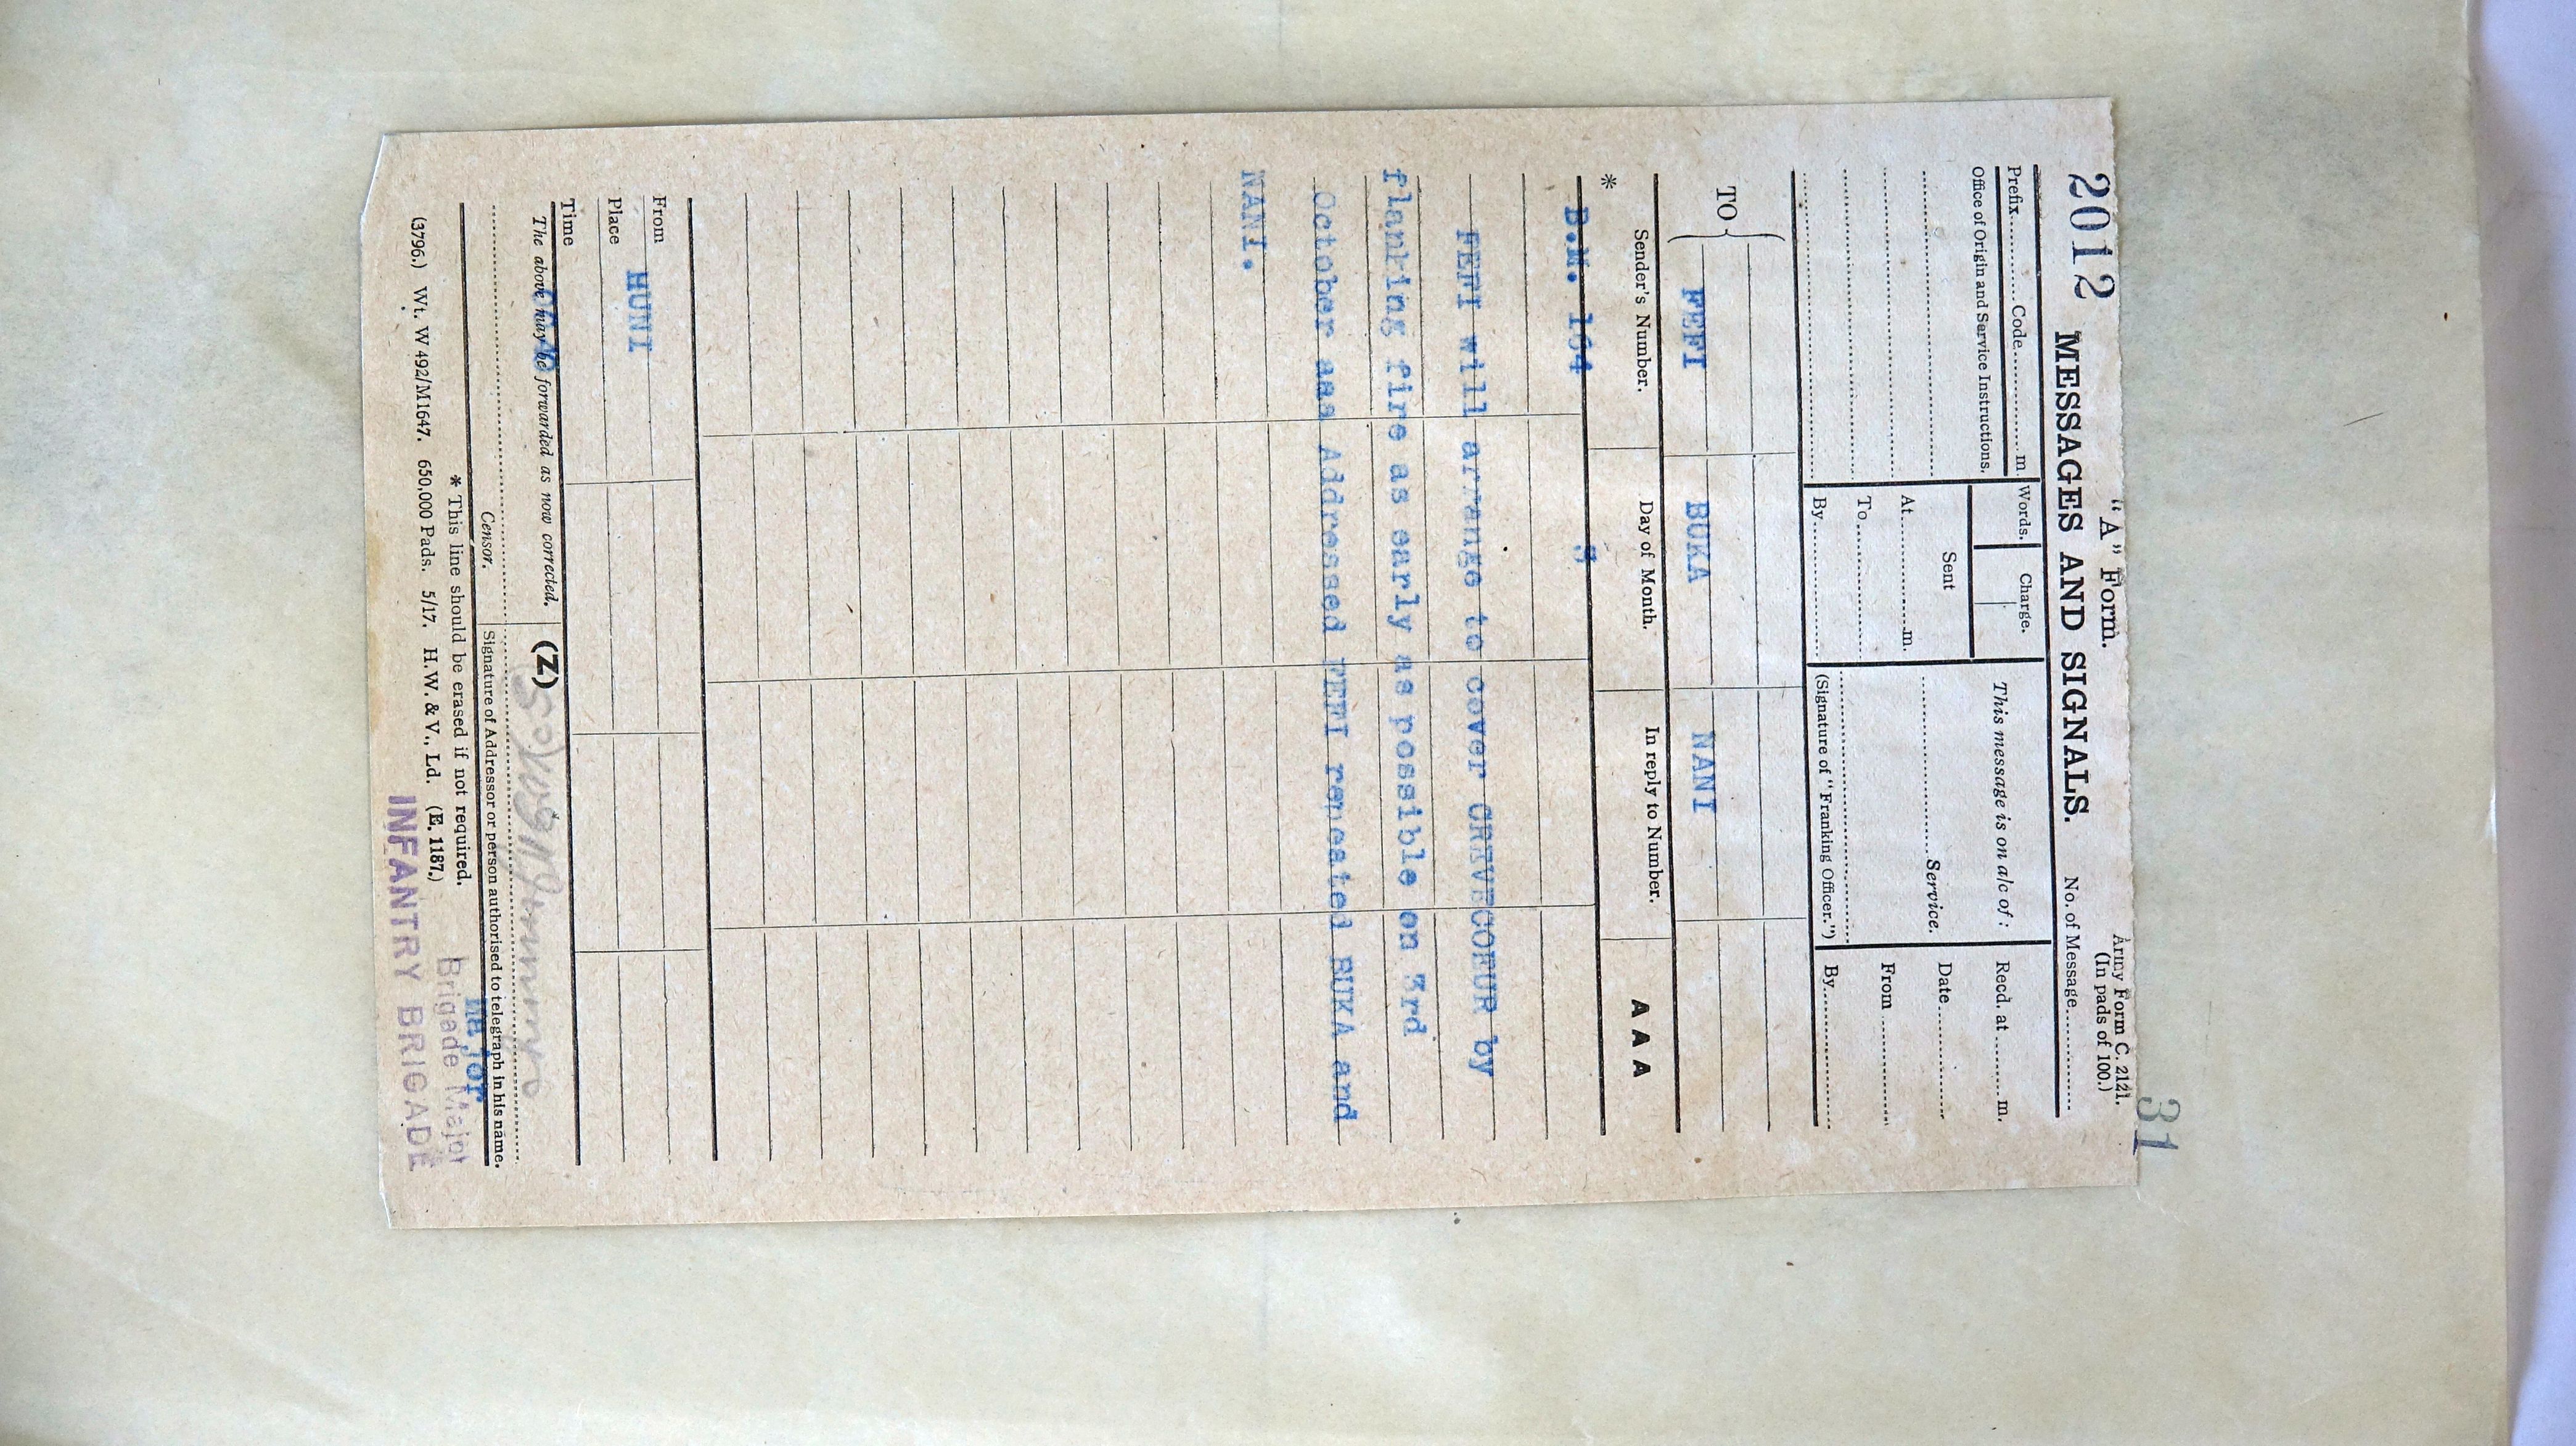 31
"A" Form.
Army Form C. 2121.
(In pads of 100.)
2012 MESSAGES AND SIGNALS. No. of Message
Prefix Code m.
Words. Charge.
This message is on a/c of :
Recd. at m.
Office of Origin and Service Instructions.
Sent
Service.
Date
At m.
From
To
By
(Signature of "Franking Officer.")
By
TO FEFI BUKA NANI
* Sender's Number. Day of Month. In reply to Number. AAA
B.M. 164 3
FEFI will arrange to cover CREVECOEUR by
flanking fire as early as possible on 3rd
October aaa Addressed FEFI repeated BUKA and
NANI.
From HUNI
Place
Time
The above may be forwarded as now corrected. (Z)
Censor. Signature of Addressor or person authorised to telegraph in his name.
Major
* This line should be erased if not required.
Brigade Major
(3796.) Wt. W 492/M1647. 650,000 Pads. 5/17. H.W. & V., Ld. (E. 1187.)
INFANTRY BRIGADE